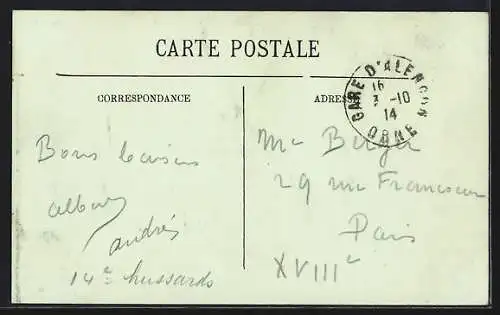 CARTE POSTALE
CORRESPONDANCE
ADRESSE
GARE D'ALENCON
16
3 -10
14
ORNE
Bons baisers
andré
14e hussards
Me Berger
29 rue Francoeur
Paris
XVIIIe